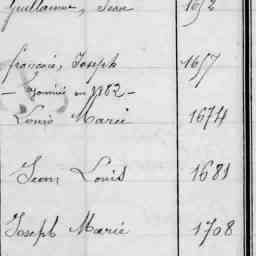 Guillaume, Jean 1652
François, Joseph 1657
en 1782 -
Louis Marie 1674
Jean Louis 1681
Joseph Marie 1708